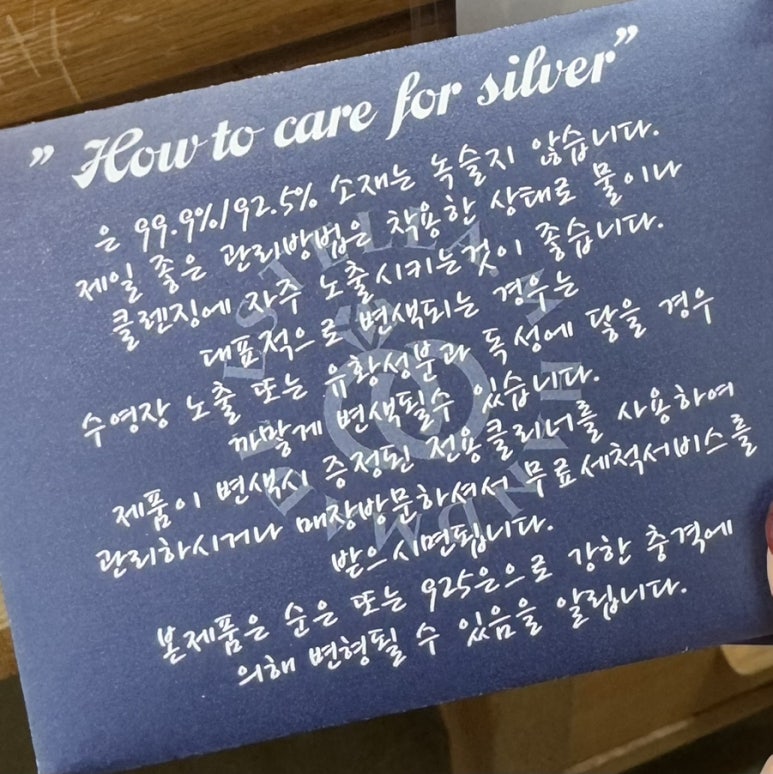 ” How to care for silver”
은 99.9%/92.5% 소재는 녹슬지 않습니다.
제일 좋은 관리방법은 착용한 상태로 물이나
클렌징에 자주 노출시키는것이 좋습니다.
대표적으로 변색되는 경우는
수영장 노출 또는 유황성분과 독성에 닿을 경우
까맣게 변색될수 있습니다.
제품이 변색시 증정된 전용클리너를 사용하여
관리하시거나 매장방문하셔서 무료세척서비스를
받으시면됩니다.
본제품은 순은 또는 925은으로 강한 충격에
의해 변형될 수 있음을 알립니다.
ESTELLA
HANDMADE